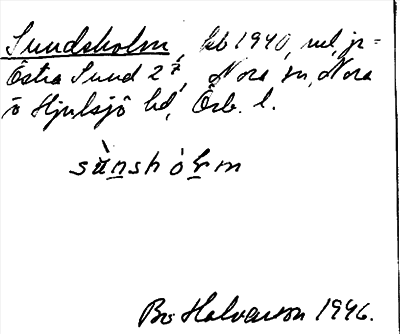 Sundsholm, kb 1940, nul, jr =
Östra Sund 2⁷, Nora sn, Nora
o Hjulsjö bd, Örb. l.
sùnshólm
Bo Halvarson 1946.